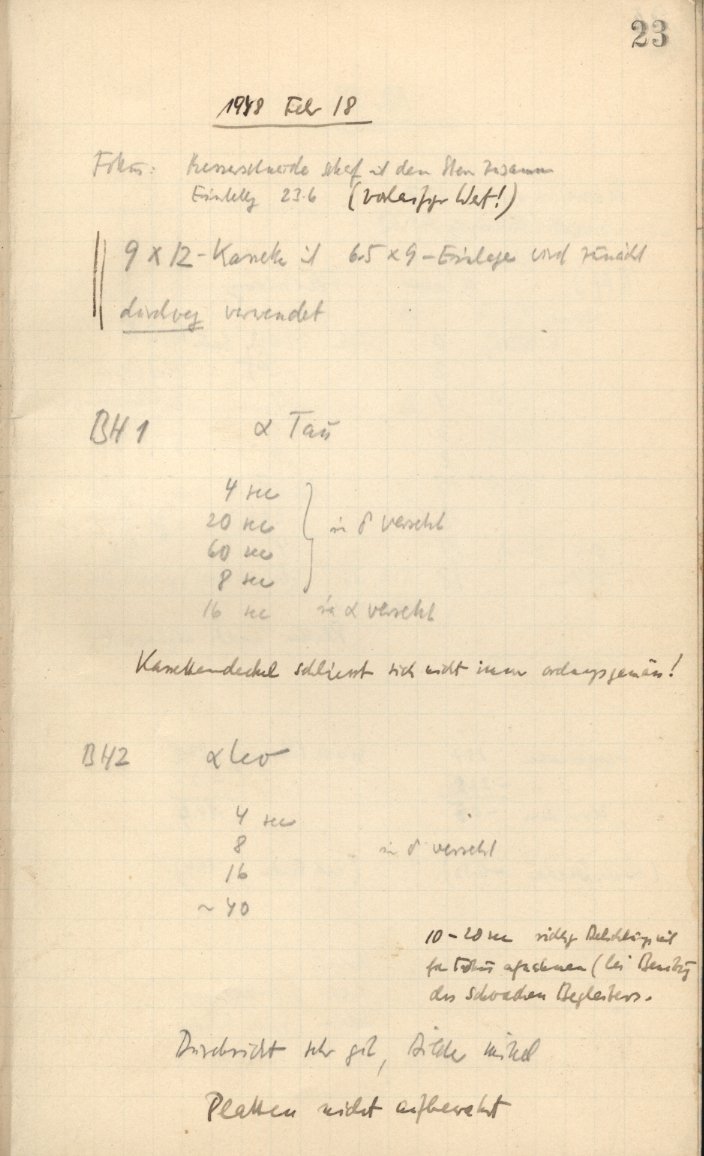 23
1948 Febr 18
Fokus: Messerschneide scharf mit dem Stern zusammen
Einstellg 23.6 (vorläufiger Wert!)
9 x 12-Kassette mit 6.5 x 9-Einlage wird zunächst
durchweg verwendet
BH 1 α Tau
4 sec
20 sec in δ versetzt
60 sec
8 sec
16 sec in α versetzt
Kassettendeckel schliesst sich nicht immer ordnungsgemäss!
BH2 α Leo
4 sec
8 in δ versetzt
16
~ 40
10-20 sec richtige Belichtungszeit
für Fokusaufnahmen (bei Benutzg
des schwachen Begleiters.
Durchsicht sehr gut, Bilder mittel
Platten nicht aufbewahrt